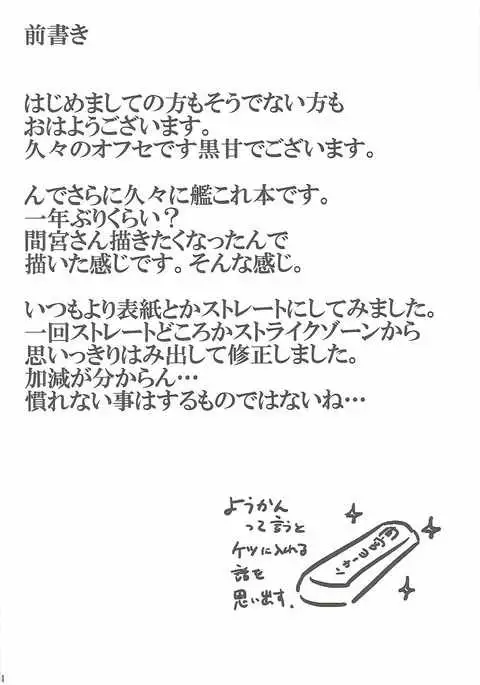 前書き
はじめましての方もそうでない方も
おはようございます。
久々のオフセです黒甘でございます。
んでさらに久々に艦これ本です。
一年ぶりくらい？
間宮さん描きたくなったんで
描いた感じです。そんな感じ。
いつもより表紙とかストレートにしてみました。
一回ストレートどころかストライクゾーンから
思いっきりはみ出して修正しました。
加減が分からん…
慣れない事はするものではないね…
ようかん
って言うと
ケツに入れる
話を
思い出す.